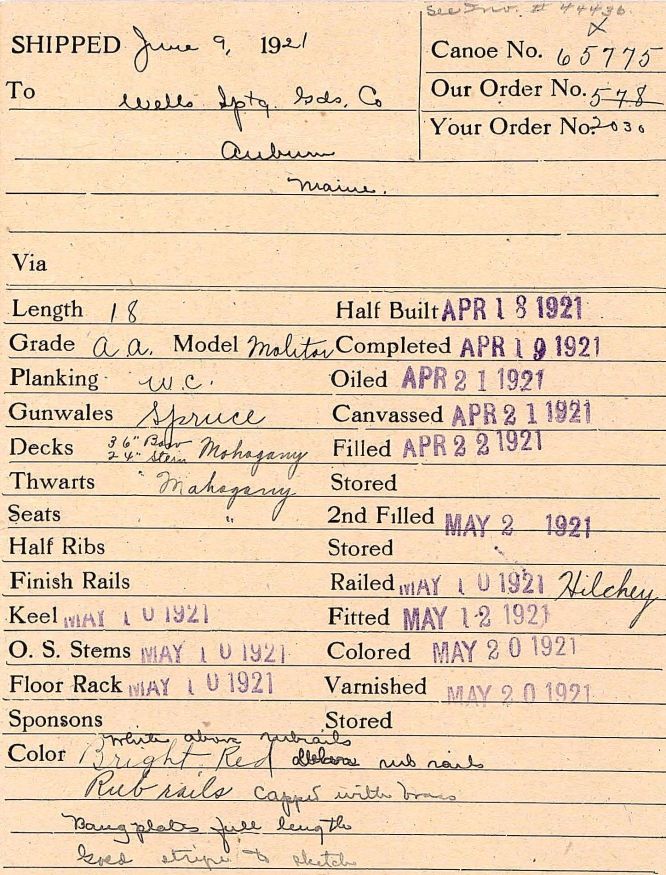 See Inv. # 44436
x
SHIPPED June 9, 1921
Canoe No. 65775
To Wells Sptg. Gds. Co
Our Order No. 578
Auburn
Your Order No. 2030
Maine.
Via
Length 18 Half Built APR 18 1921
Grade AA. Model Molitor Completed APR 19 1921
Planking W.C. Oiled APR 21 1921
Gunwales Spruce Canvassed APR 21 1921
Decks 36" Bow 24" Stern Mahogany Filled APR 22 1921
Thwarts Mahogany Stored
Seats " 2nd Filled MAY 2 1921
Half Ribs Stored
Finish Rails Railed MAY 10 1921 Hilchey
Keel MAY 10 1921 Fitted MAY 12 1921
O. S. Stems MAY 10 1921 Colored MAY 20 1921
Floor Rack MAY 10 1921 Varnished MAY 20 1921
Sponsons Stored
white above rubrails
Color Bright Red rub rails
Rub rails capped with brass
Bang plates full length
Gold stripe to sketch